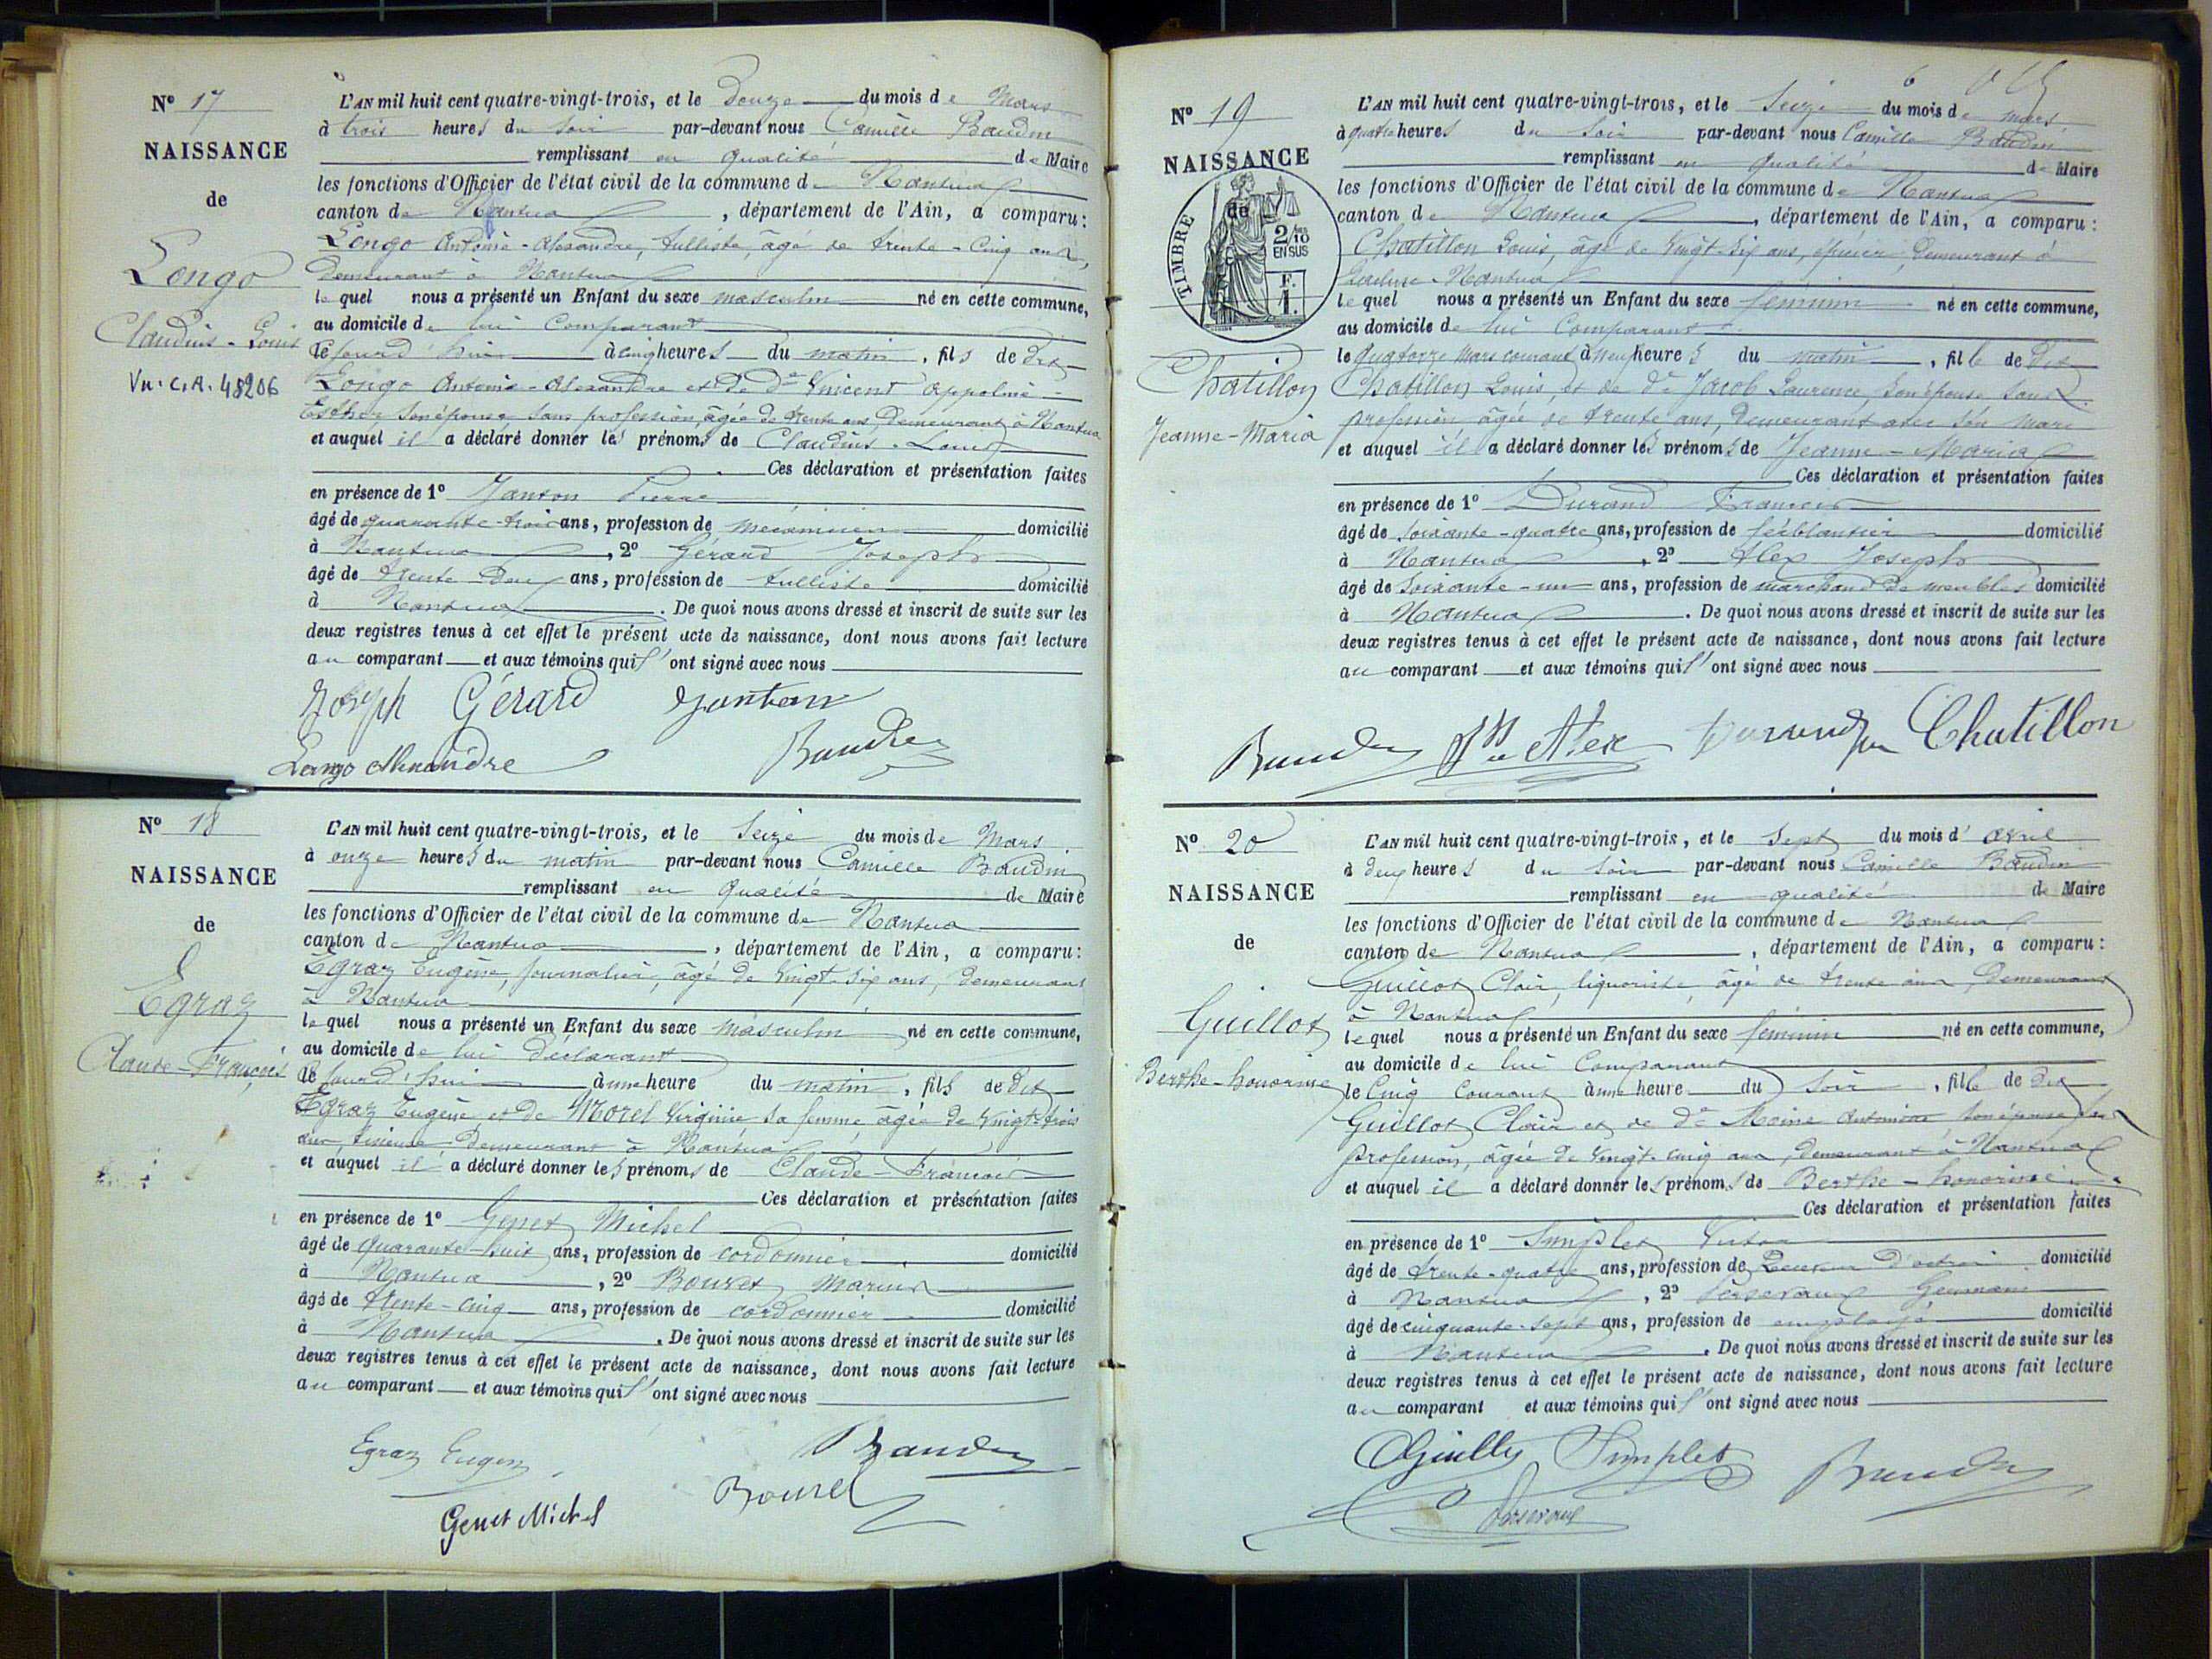 N° 17
NAISSANCE
de
Longo
Claudius-Louis
Vu. C.A. 48206
L'AN mil huit cent quatre-vingt-trois, et le Douze du mois de Mars
à trois heures du soir par-devant nous Camille Baudin
remplissant en qualité de Maire
les fonctions d'Officier de l'état civil de la commune de Nantua
canton de Nantua, département de l'Ain, a comparu:
Longo Antoine-Alexandre, tulliste, âgé de trente-cinq ans,
demeurant à Nantua
lequel nous a présenté un Enfant du sexe masculin né en cette commune,
au domicile de lui comparant
le jourd'hui à cinq heures du matin, fils de dit
Longo Antoine-Alexandre et de de Vincent Appolinie-
Esther, son épouse, sans profession, âgée de trente ans, demeurant à Nantua
et auquel il a déclaré donner les prénoms de Claudius-Louis
Ces déclaration et présentation faites
en présence de 1° Janton Pierre
âgé de quarante-trois ans, profession de mécanicien domicilié
à Nantua, 2° Gérard Joseph
âgé de trente-deux ans, profession de tulliste domicilié
à Nantua. De quoi nous avons dressé et inscrit de suite sur les
deux registres tenus à cet effet le présent acte de naissance, dont nous avons fait lecture
au comparant et aux témoins qui l'ont signé avec nous
Joseph Gérard Janton
Longo Alexandre Baudin
N° 18
NAISSANCE
de
Egraz
Claude-François
L'AN mil huit cent quatre-vingt-trois, et le Seize du mois de Mars
à onze heures du matin par-devant nous Camille Baudin
remplissant en qualité de Maire
les fonctions d'Officier de l'état civil de la commune de Nantua
canton de Nantua, département de l'Ain, a comparu:
Egraz Eugène, journalier, âgé de vingt-six ans, demeurant
à Nantua
lequel nous a présenté un Enfant du sexe masculin né en cette commune,
au domicile de lui déclarant
le jourd'hui à une heure du matin, fils de dit
Egraz Eugène et de Morel Virginie, sa femme, âgée de vingt-trois
ans demeurant à Nantua
et auquel il a déclaré donner les prénoms de Claude-François
Ces déclaration et présentation faites
en présence de 1° Genet Michel
âgé de quarante-huit ans, profession de cordonnier domicilié
à Nantua, 2° Bouvet Marius
âgé de trente-cinq ans, profession de cordonnier domicilié
à Nantua. De quoi nous avons dressé et inscrit de suite sur les
deux registres tenus à cet effet le présent acte de naissance, dont nous avons fait lecture
au comparant et aux témoins qui l'ont signé avec nous
Egraz Eugène Baudin
Genet Michel Bouvet
N° 19
NAISSANCE
de
TIMBRE
2/10
EN SUS
F.
1.
Chatillon
Jeanne-Maria
L'AN mil huit cent quatre-vingt-trois, et le Seize du mois de mars
à quatre heures du soir par-devant nous Camille Baudin
remplissant en qualité de Maire
les fonctions d'Officier de l'état civil de la commune de Nantua
canton de Nantua, département de l'Ain, a comparu:
Chatillon Louis, âgé de vingt-six ans, épicier, demeurant à
Nantua
lequel nous a présenté un Enfant du sexe féminin né en cette commune,
au domicile de lui comparant
le quatorze mars courant à neuf heures du matin, fille de dit
Chatillon Louis, et de de Jacob Laurence, son épouse, sans
profession âgée de trente ans, demeurant avec son mari
et auquel il a déclaré donner les prénoms de Jeanne-Maria
Ces déclaration et présentation faites
en présence de 1° Durand François
âgé de soixante-quatre ans, profession de ferblantier domicilié
à Nantua, 2° Alex Joseph
âgé de soixante-un ans, profession de marchand de meubles domicilié
à Nantua. De quoi nous avons dressé et inscrit de suite sur les
deux registres tenus à cet effet le présent acte de naissance, dont nous avons fait lecture
au comparant et aux témoins qui l'ont signé avec nous
Baudin Alex Durand Chatillon
N° 20
NAISSANCE
de
Guillot
Berthe-honorine
L'AN mil huit cent quatre-vingt-trois, et le Sept du mois d'avril
à deux heures du soir par-devant nous Camille Baudin
remplissant en qualité de Maire
les fonctions d'Officier de l'état civil de la commune de Nantua
canton de Nantua, département de l'Ain, a comparu:
Guillot Clair, liquoriste, âgé de trente ans, demeurant
à Nantua
lequel nous a présenté un Enfant du sexe féminin né en cette commune,
au domicile de lui comparant
le cinq courant à une heure du soir, fille de dit
Guillot Clair et de de Moine Antoinine, son épouse sans
profession, âgée de vingt-cinq ans, demeurant à Nantua
et auquel il a déclaré donner les prénoms de Berthe-honorine
Ces déclaration et présentation faites
en présence de 1° Simplet Victor
âgé de trente-quatre ans, profession de Receveur d'octroi domicilié
à Nantua, 2° Germain
âgé de cinquante-sept ans, profession de employé domicilié
à Nantua. De quoi nous avons dressé et inscrit de suite sur les
deux registres tenus à cet effet le présent acte de naissance, dont nous avons fait lecture
au comparant et aux témoins qui l'ont signé avec nous
Simplet Baudin